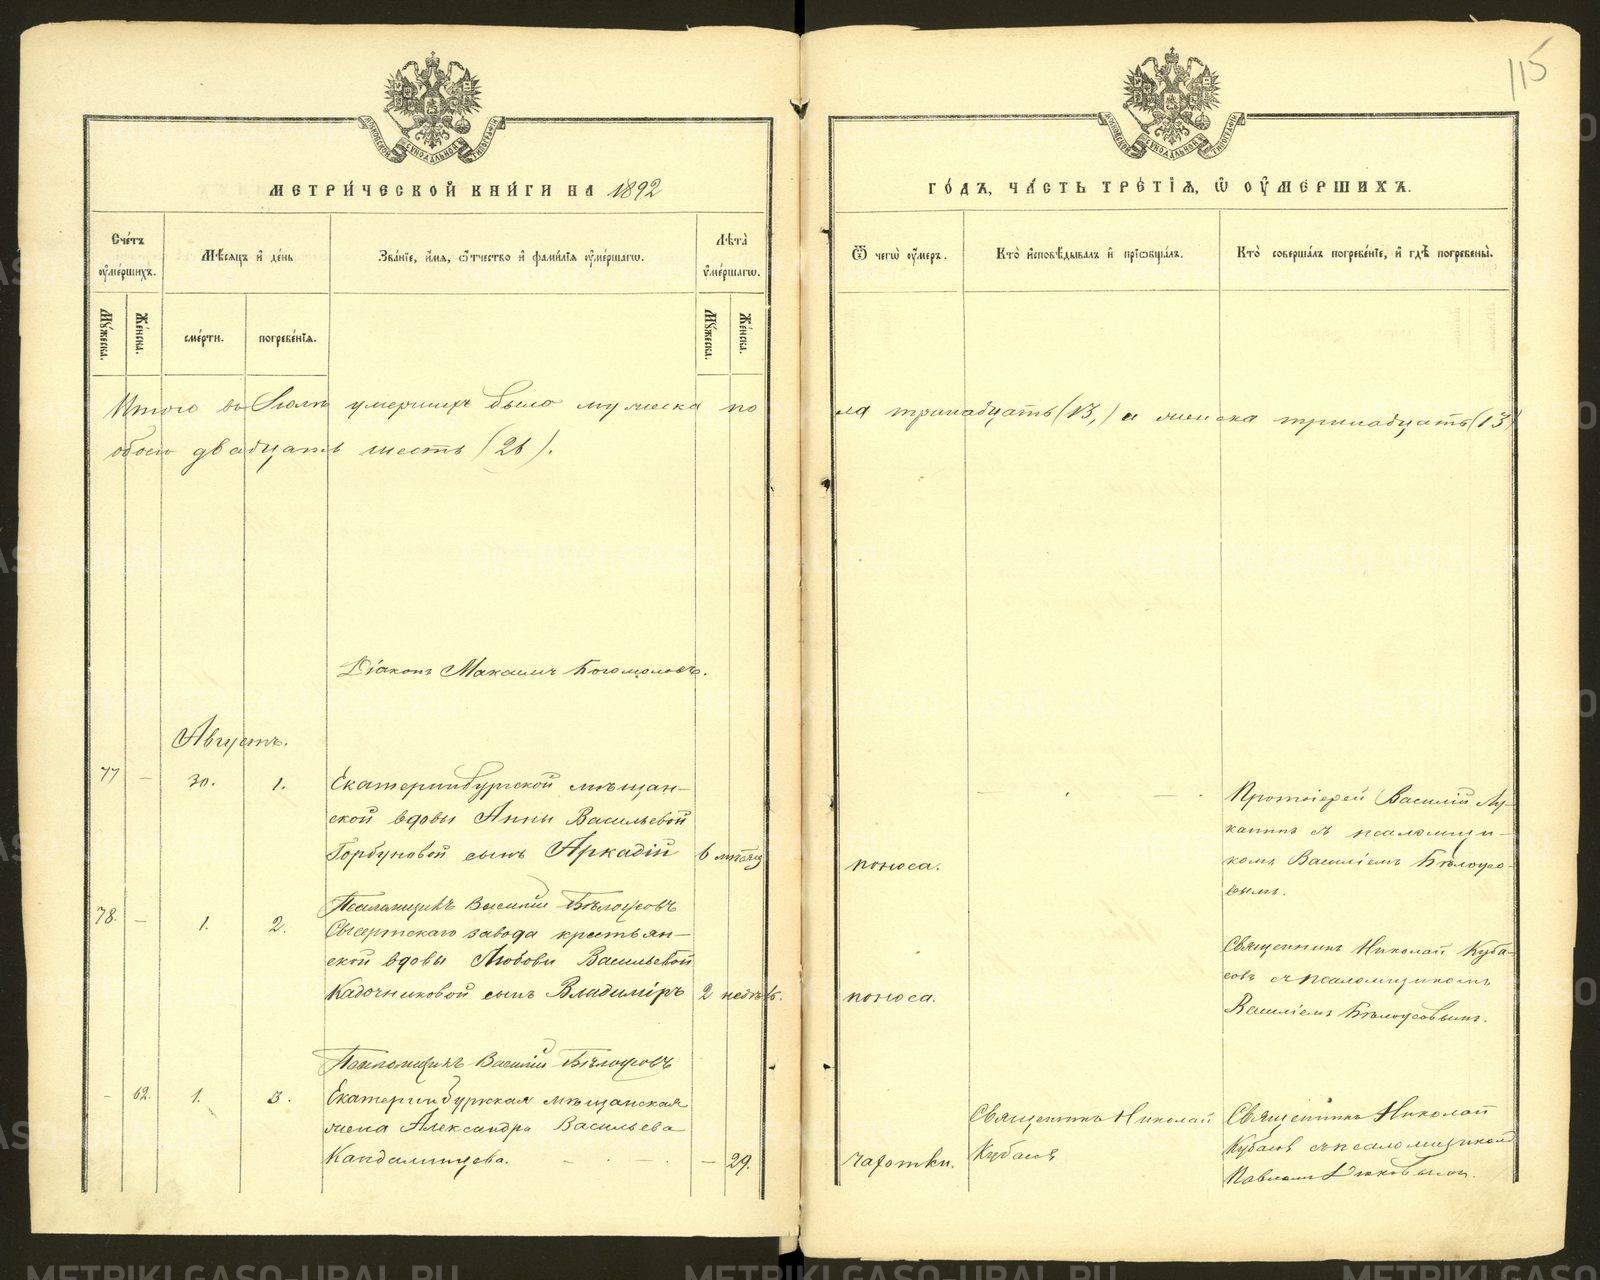 115
МЕТРИ́ЧЕСКОЙ КНИ́ГИ НА 1892
ГО́ДЪ, ЧА́СТЬ ТРЕ́ТІѦ, Ѿ ОУ҆МЕ́РШИХЪ.
Сче́тъ оу҆ме́ршихъ.
Мѣ́сяцъ и҆ де́нь
Зва́ніе, и҆́мѧ, ѻ҆́тчество и҆ фами́лїѧ оу҆ме́ршагѡ.
Лѣ́та оу҆ме́ршагѡ.
Ѿ чегѡ̀ оу҆́меръ.
Кто̀ и҆сповѣ́дывалъ и҆ прїѡбща́лъ.
Кто̀ соверша́лъ погребе́нїе, и҆ гдѣ̀ погребены̀.
Му́жеска.
Же́нска.
сме́рти.
погребе́нїѧ.
Му́жеска.
Же́нска.
Итого въ Іюлѣ умершихъ было мужеска по
ла тринадцать (13,) и женска тринадцать (13)
обоего двадцать шесть (26).
Діаконъ Максимъ Богомоловъ.
Августъ.
77 — 30. 1. Екатеринбургской мѣщан-
ской вдовы Анны Васильевой
Горбуновой сынъ Аркадій 6 мѣсяц
поноса.
Протоіерей Василій Лу-
канинъ съ псаломщи-
комъ Василіемъ Бѣлоусо-
вымъ.
Псаломщикъ Василій Бѣлоусовъ
78. — 1. 2. Сысертскаго завода крестьян-
ской вдовы Любови Васильевой
Кадочниковой сынъ Владиміръ 2 недѣль.
поноса.
Священникъ Николай Куба-
совъ съ псаломщикомъ
Василіемъ Бѣлоусовымъ.
Псаломщикъ Василій Бѣлоусовъ
- 62. 1. 3. Екатеринбургская мѣщанская
жена Александра Васильева
Кандалинцева. — 29.
чахотки.
Священникъ Николай
Кубасовъ
Священникъ Николай
Кубасовъ съ псаломщикомъ
Павломъ